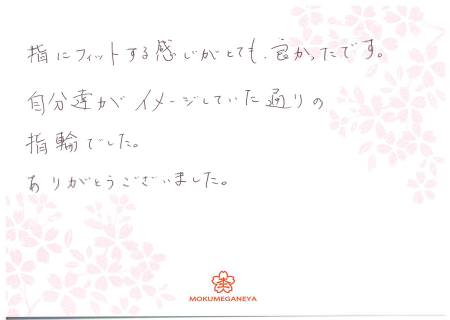 指にフィットする感じがとても、良かったです。
自分達が イメージしていた通りの
指輪でした。
ありがとうございました。
MOKUMEGANEYA